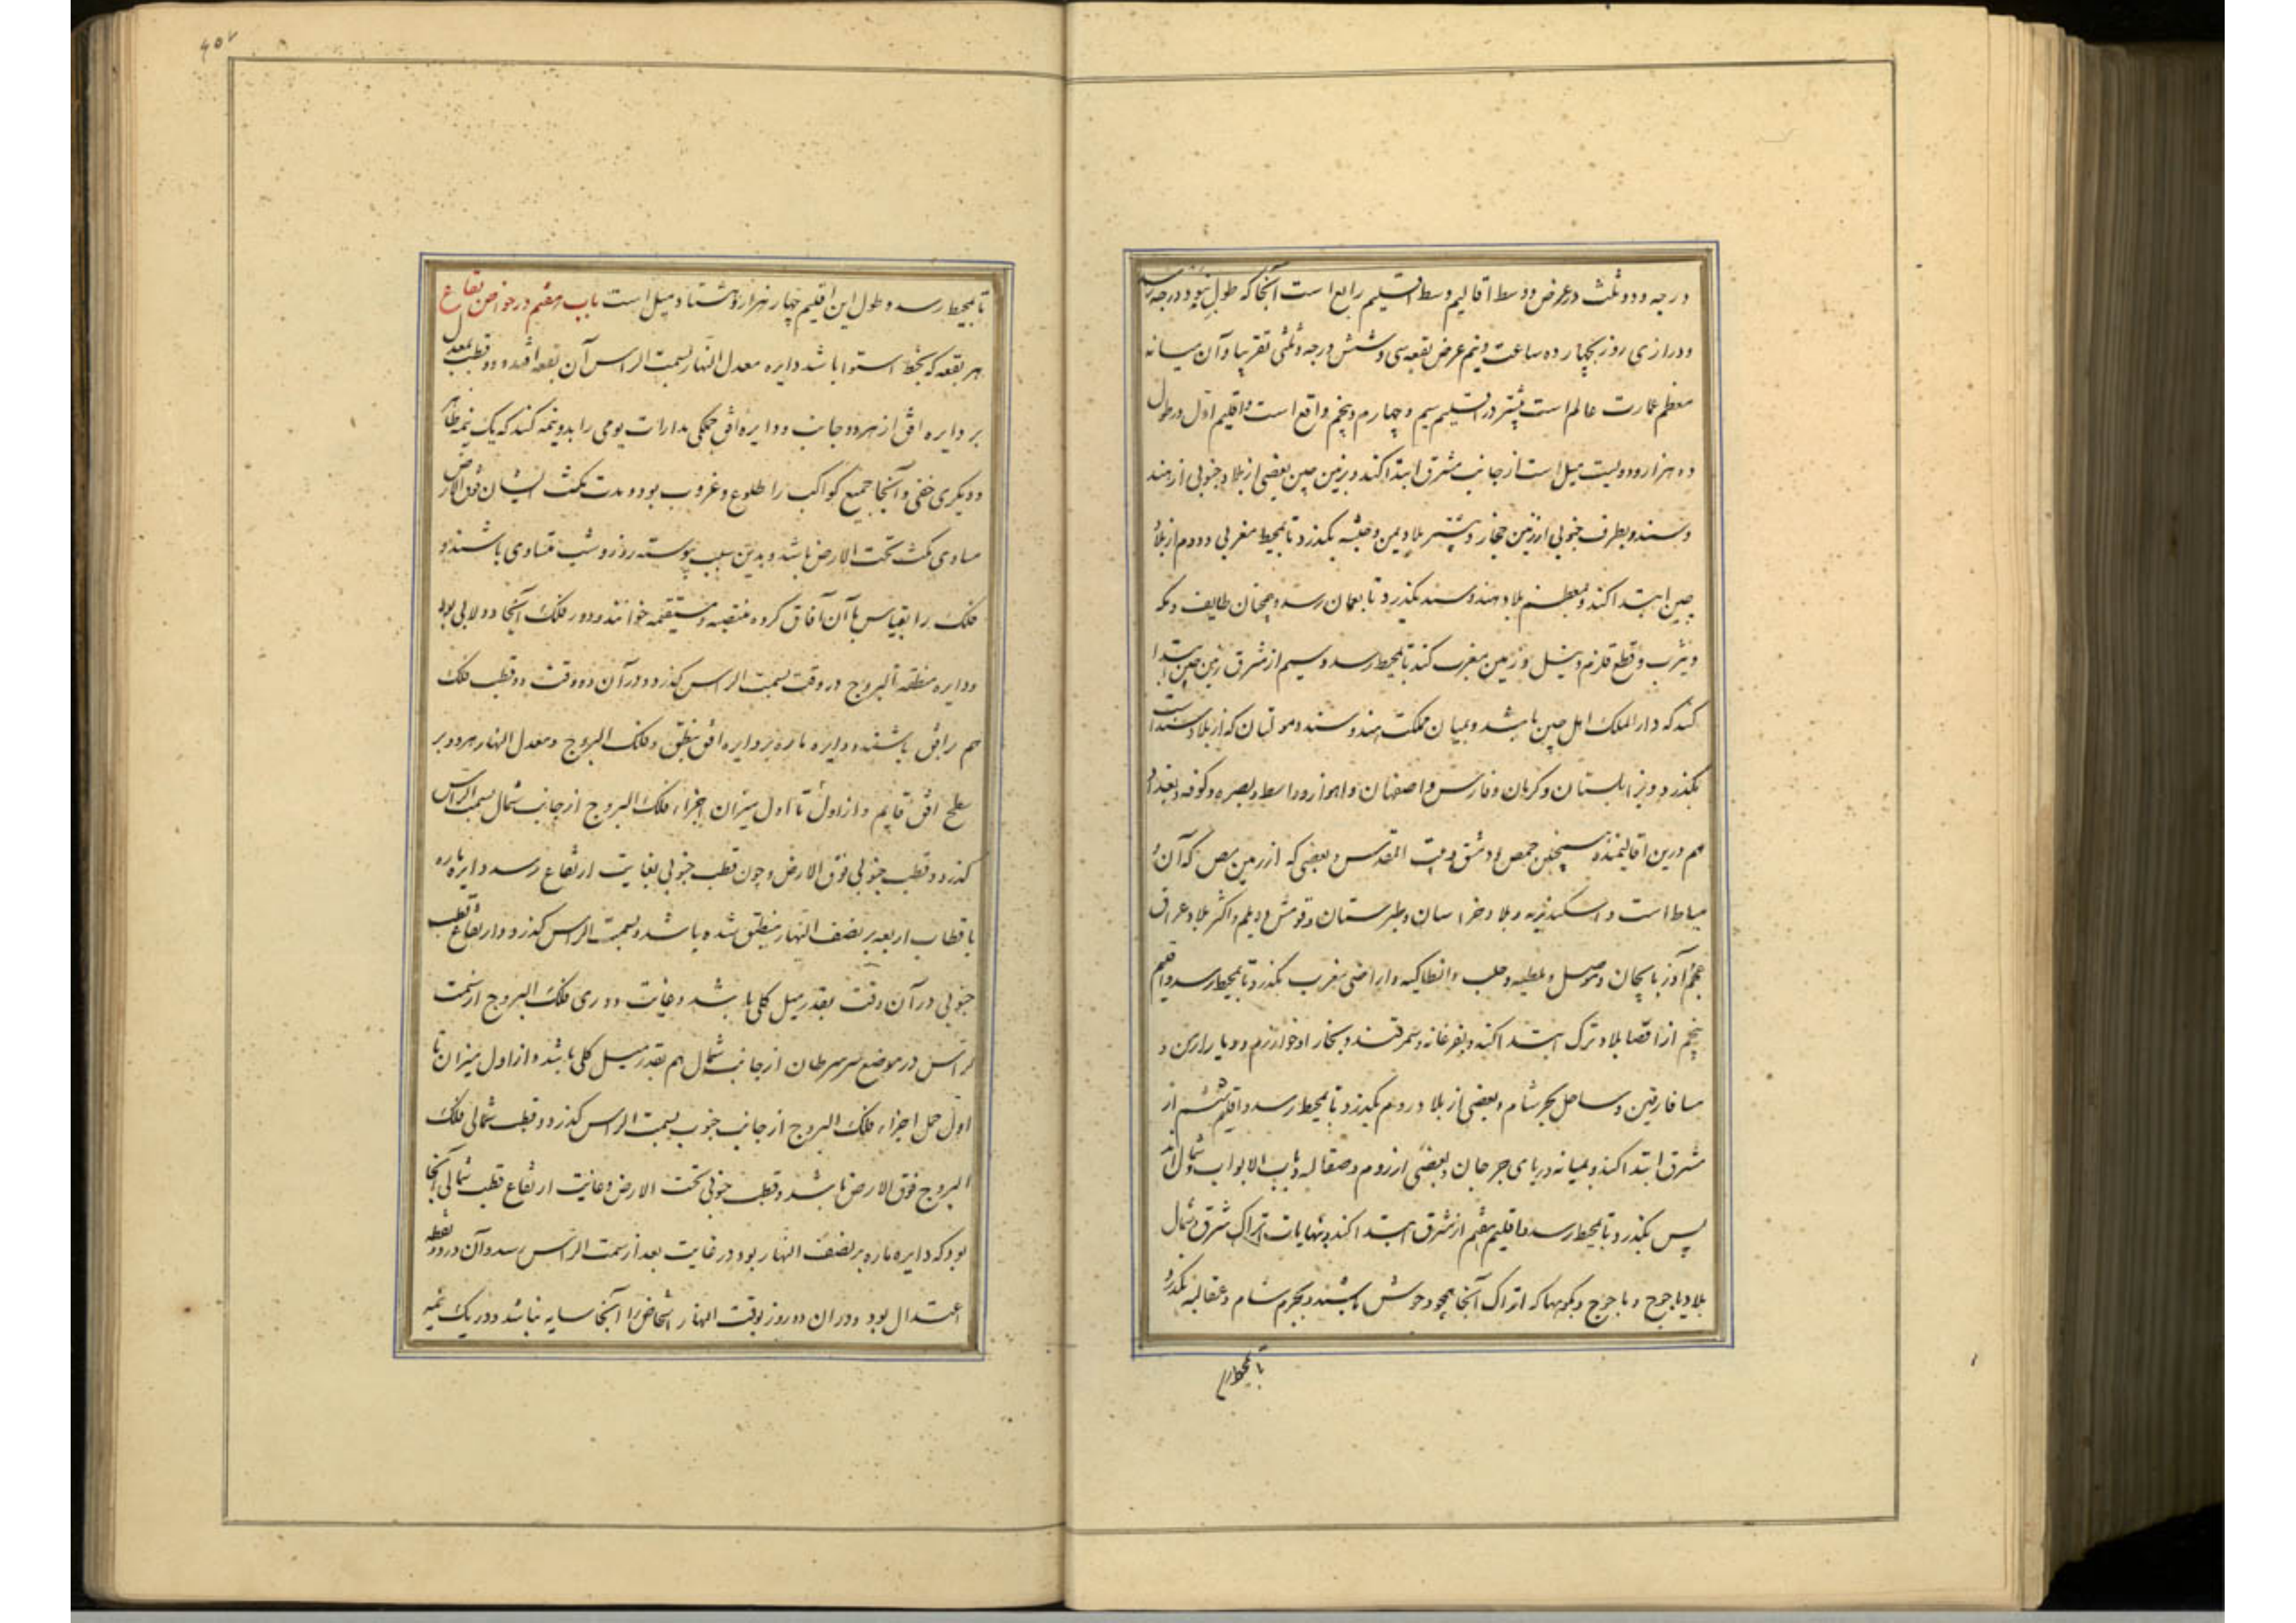 درجه و دو ثلث در عرض و وسط اقالیم وسط اقلیم رابع است آنجا که طول نود درجه
و درازی روز بچهارده ساعت و نیم عرض بقعه سی و شش درجه و ثلثی تقریبا و آن میانه
معظم عمارت عالم است بیشتر در اقلیم سیم و چهارم و پنجم واقع است و اقلیم اول در طول
ده هزار و دویست میل است از جانب مشرق ابتدا کند و بزمین چین بعضی از بلاد جنوبی از هند
و سند و بطرف جنوبی از زمین حجاز و بیشتر بلاد یمن و حبشه بگذرد تا بمحیط مغربی و دوم از بلاد
چین ابتدا کند و بمعظم بلاد هند و سند بگذرد تا بعمان رسد و همچنان طایف و مکه
و یثرب و قطع قلزم و نیل و زمین مغرب کند تا بمحیط رسد و سیم از مشرق زمین چین ابتدا
کند که دار الملک اهل چین باشد و بمیان مملکت هند و سند و مولتان که از بلاد سند است
بگذرد و بزابلستان و کرمان و فارس و اصفهان و اهواز و واسط و بصره و کوفه و بغداد
هم درین اقالیمند همچنین حمص و دمشق و بیت المقدس و بعضی که از زمین مصر که آن
میاط است و اسکندریه و بلاد خراسان و طبرستان و قومش و دیلم و اکثر بلاد عراق
عجم و آذربایجان و موصل و ملطیه و حلب و انطاکیه و اراضی مغرب بگذرد تا بمحیط رسد و اقلیم
پنجم از اقصا بلاد ترک ابتدا کند و بفرغانه و سمرقند و بخارا و خوارزم و دیار ارمن و
میافارقین و ساحل بحر شام و بعضی از بلاد روم بگذرد تا بمحیط رسد و اقلیم ششم از
مشرق ابتدا کند و بمیانه دریای جرجان و بعضی از روم و صقالبه و باب الابواب و شمال اند
لس بگذرد تا بمحیط رسد و اقلیم هفتم از مشرق ابتدا کند و بنهایات اتراک شرق و شمال
بلاد یاجوج و ماجوج و بکوهها که اتراک آنجا همچو وحوش باشند و بحر شام و صقالبه بگذرد
تا بمحیط
۴۵۷
تا بمحیط رسد و طول این اقلیم چهار هزار و هشتاد میل است باب هفتم در خواص بقاع
هر بقعه که بخط استوا باشد دایره معدل النهار بسمت الراس آن بقعه افتد و دو قطب معدل
بر دایره افق از هر دو جانب و دایره افق جملگی مدارات یومی را بدو نیمه کند که یک نیمه ظاهر
و دیگری خفی و آنجا جمیع کواکب را طلوع و غروب بود و مدت مکث ایشان فوق الارض
مساوی مکث تحت الارض باشد و بدین سبب پیوسته روز و شب متساوی باشند و
فلک را بقیاس با آن آفاق کره منتصبه و مستقیمه خوانند و دور فلک آنجا دولابی بود
و دایره منطقه البروج در دو وقت بسمت الراس گذرد و در آن دو وقت دو قطب فلک
هم بر افق باشند و دایره ماره بر دایره افق منطبق و فلک البروج و معدل النهار هر دو بر
سطح افق قایم و از اول تا اول میزان اجزاء فلک البروج از جانب شمال بسمت الراس
گذرد و قطب جنوبی فوق الارض و چون قطب جنوبی بغایت ارتفاع رسد دایره ماره
باقطاب اربعه بر نصف النهار منطبق شده باشد و بسمت الراس گذرد و ارتفاع قطب
جنوبی در آن وقت بقدر میل کلی باشد و غایت دوری فلک البروج از سمت
الراس در موضع سر سرطان از جانب شمال هم بقدر میل کلی باشد و از اول میزان تا
اول حمل اجزاء فلک البروج از جانب جنوب بسمت الراس گذرد و قطب شمالی فلک
البروج فوق الارض باشد و قطب جنوبی تحت الارض و غایت ارتفاع قطب شمالی آنجا
بود که دایره ماره بر نصف النهار بود در غایت بعد از سمت الراس رسد و آن در دو نقطه
اعتدال بود و در آن دو روز بوقت النهار اشخاص را آنجا سایه نباشد و در یک نیمه